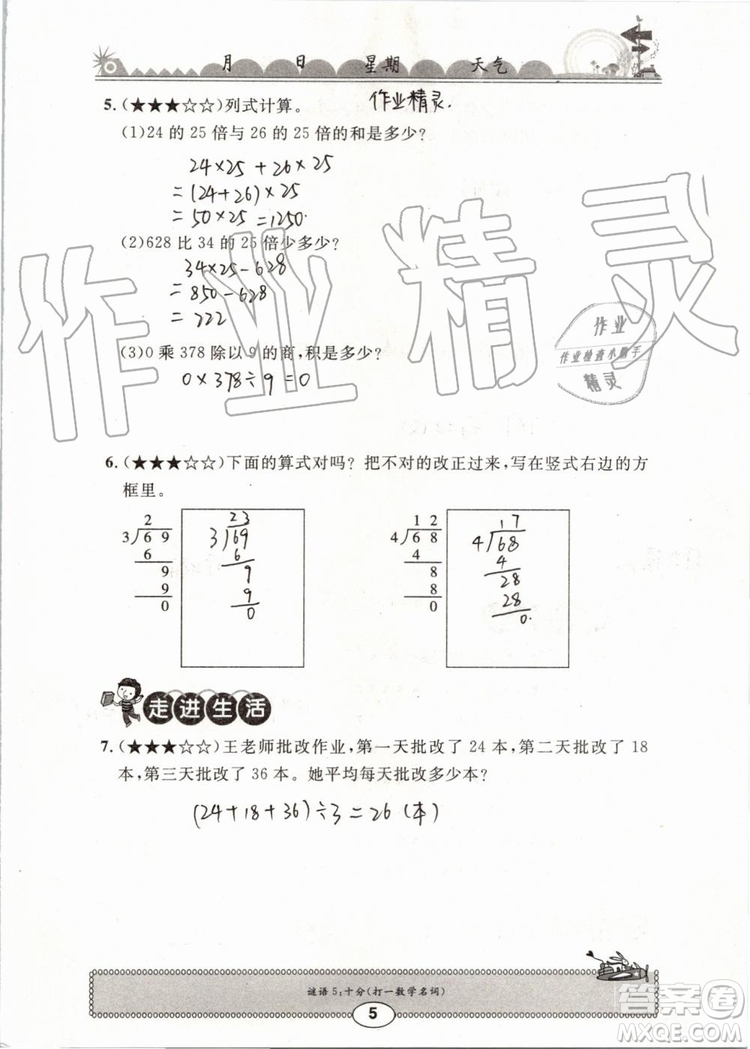 月 日 星期 天气
5.(★★★☆☆)列式计算。 作业精灵.
(1)24 的 25 倍与 26 的 25 倍的和是多少?
24×25+26×25
=(24+26)×25
=50×25=1250.
(2)628 比 34 的 25 倍少多少?
34×25-628
=850-628
=222
(3)0 乘 378 除以 9 的商,积是多少?
0×378÷9=0
作业精灵
作业
作业检查小助手
精灵
6.(★★★☆☆)下面的算式对吗? 把不对的改正过来,写在竖式右边的方
框里。
2 23 1 2 17
3 6 9 3 69 4 6 8 4 68
6 6 4 4
9 9 8 28
9 9 8 28
0 0 0 0.
走进生活
7.(★★★☆☆)王老师批改作业,第一天批改了 24 本,第二天批改了 18
本,第三天批改了 36 本。她平均每天批改多少本?
(24+18+36)÷3=26(本)
谜语 5:十分(打一数学名词)
5
答案圈
MXQE.COM